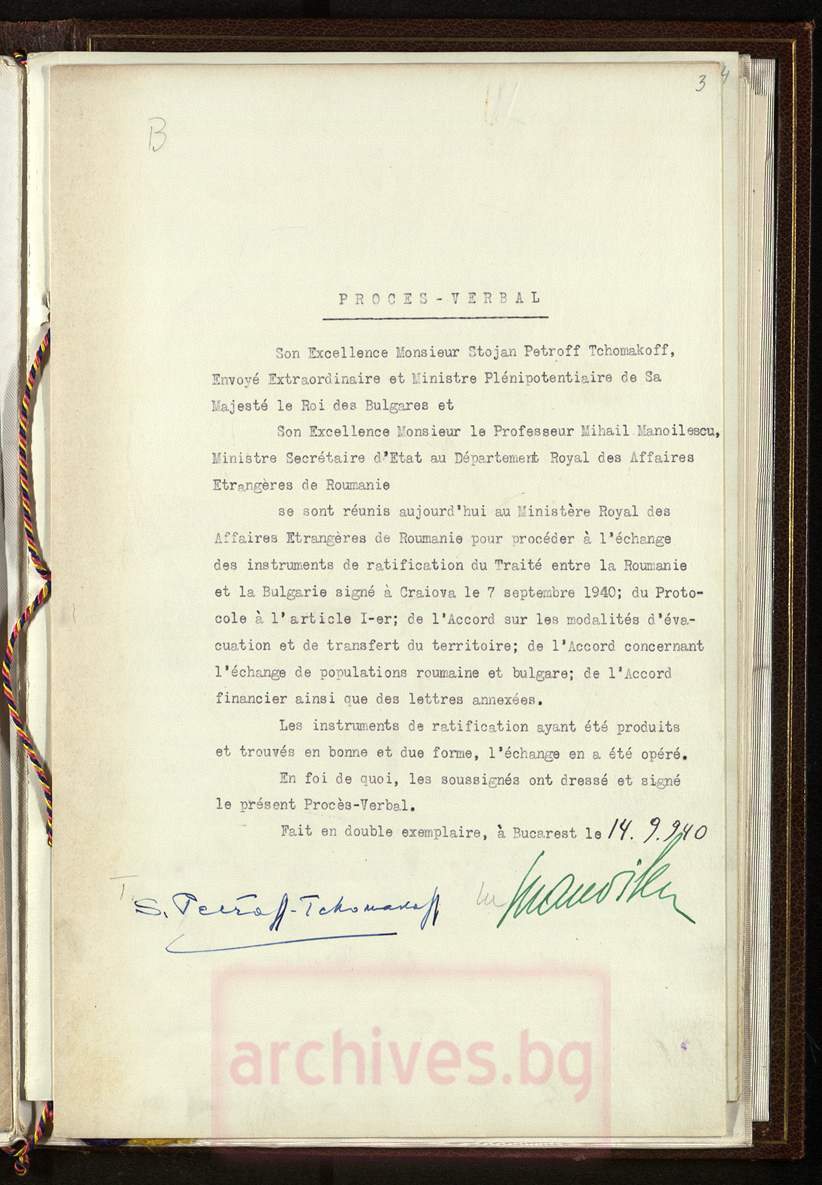 3 4
B
PROCES-VERBAL
Son Excellence Monsieur Stojan Petroff Tchomakoff,
Envoyé Extraordinaire et Ministre Plénipotentiaire de Sa
Majesté le Roi des Bulgares et
Son Excellence Monsieur le Professeur Mihail Manoilescu,
Ministre Secrétaire d'Etat au Département Royal des Affaires
Etrangères de Roumanie
se sont réunis aujourd'hui au Ministère Royal des
Affaires Etrangères de Roumanie pour procéder à l'échange
des instruments de ratification du Traité entre la Roumanie
et la Bulgarie signé à Craiova le 7 septembre 1940; du Proto-
cole à l'article I-er; de l'Accord sur les modalités d'éva-
cuation et de transfert du territoire; de l'Accord concernant
l'échange de populations roumaine et bulgare; de l'Accord
financier ainsi que des lettres annexées.
Les instruments de ratification ayant été produits
et trouvés en bonne et due forme, l'échange en a été opéré.
En foi de quoi, les soussignés ont dressé et signé
le présent Procès-Verbal.
Fait en double exemplaire, à Bucarest le 14. 9. 940
S. Petroff-Tchomakoff
archives.bg